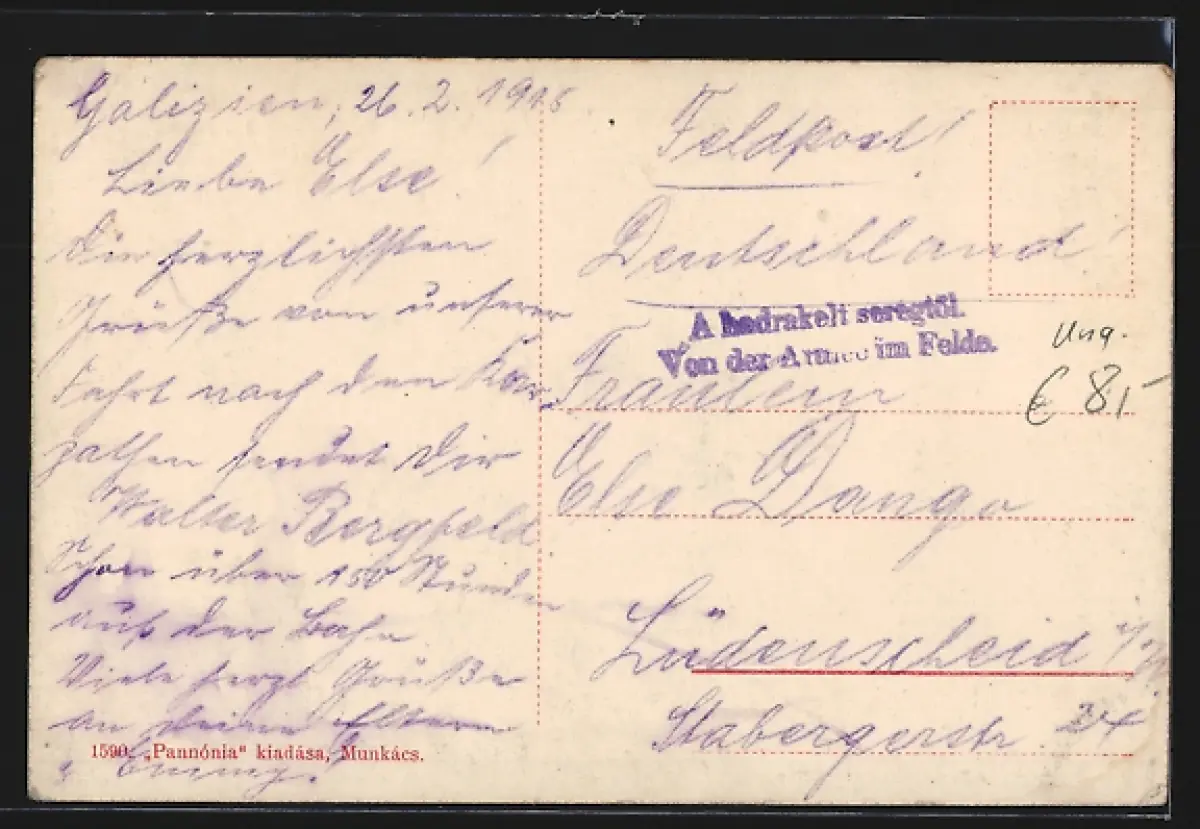 Galizien, 26.2.1915
Liebe Else!
Die herzlichsten
Grüße von unserer
Fahrt nach den Kar
pathen sendet Dir
Walter Bergfeld
Schon über 150 Stunden
auf der Bahn
Viele herzl Grüße
an Deine Eltern
1590. „Pannónia" kiadása, Munkács.
Feldpost!
Deutschland!
A hadrakelt seregtől.
Von der Armee im Felde.
Ung.
€ 8,-
Fräulein
Else Dango
Lüdenscheid i/W.
Stabergerstr. 24